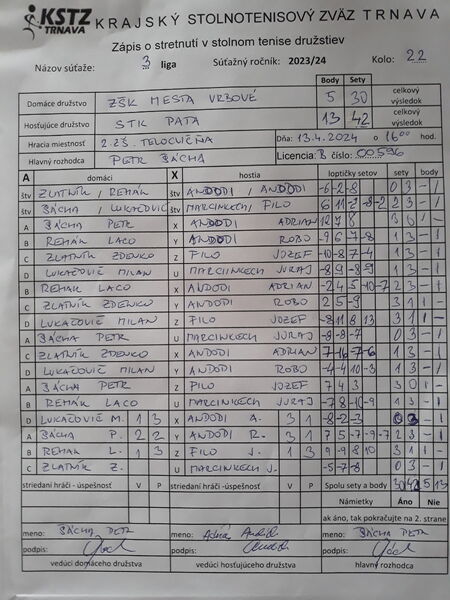 KSTZ TRNAVA KRAJSKÝ STOLNOTENISOVÝ ZVÄZ TRNAVA
Zápis o stretnutí v stolnom tenise družstiev
Názov súťaže: 3 liga Súťažný ročník: 2023/24 Kolo: 22
Body Sety
Domáce družstvo ZŠK MESTA VRBOVÉ 5 30 celkový výsledok
Hosťujúce družstvo STK PATA 13 42 celkový výsledok
Hracia miestnosť 2.ZŠ. TELOCVIČŇA Dňa: 13.4.2024 o 16:00 hod.
Hlavný rozhodca PETR BÁCHA Licencia: B číslo: 00596
A domáci X hostia loptičky setov sety body
štv ZLATNÍK / REHÁK štv ANDODI / ANDODI -6 -2 -8 0 3 - 1
štv BÁCHA / LUKAČOVIČ štv MARCINKECH / FILO 2 3 - 1
A BÁCHA PETR X ANDODI ADRIAN
B REHÁK LACO Y ANDODI ROBO -9 6 -7 -8 1 3 - 1
C ZLATNÍK ZDENKO Z FILO JOZEF -10 -8 7 -4 1 3 - 1
D LUKAČOVIČ MILAN U MARCINKECH JURAJ -8 9 -8 -9 1 3 - 1
B REHÁK LACO X ANDODI ADRIAN -2 4 5 -10 -7 2 3 - 1
C ZLATNÍK ZDENKO Y ANDODI ROBO 3 1 1 -
D LUKAČOVIČ MILAN Z FILO JOZEF -8 11 8 13 3 1 1 -
A BÁCHA PETR U MARCINKECH JURAJ 0 3 - 1
C ZLATNÍK ZDENKO X ANDODI ADRIAN 7 -16 -7 -6 1 3 - 1
D LUKAČOVIČ MILAN Y ANDODI ROBO -4 4 -10 -3 1 3 - 1
A BÁCHA PETR Z FILO JOZEF 7 4 3 3 0 1 -
B REHÁK LACO U MARCINKECH JURAJ -7 8 -10 -9 1 3 - 1
D LUKAČOVIČ M. 1 3 X ANDODI A. 3 1 -8 -2 -3 0 3 - 1
A BÁCHA P. 2 2 Y ANDODI R. 3 1 7 5 -7 -9 -7 2 3 - 1
B REHÁK L. 1 3 Z FILO J. 1 3 3 1 1 -
C ZLATNÍK Z. U MARCINKECH J. -5 -7 -8 0 3 - 1
striedaní hráči - úspešnosť V P striedaní hráči -úspešnosť V P Spolu sety a body 30 42 5 13
Námietky Áno Nie
ak áno, tak pokračujte na 2. strane
meno: BÁCHA PETR meno: meno: BÁCHA PETR
podpis: podpis: podpis:
vedúci domáceho družstva vedúci hosťujúceho družstva hlavný rozhodca